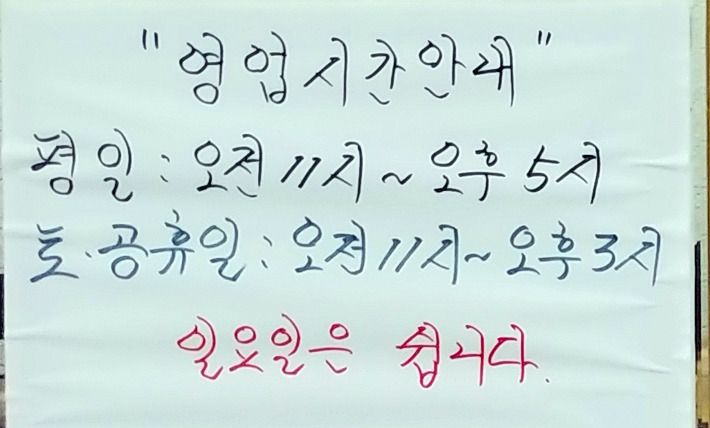 "영업시간안내"
평일: 오전 11시~오후 5시
토.공휴일: 오전 11시~오후 3시
일요일은 쉽니다.